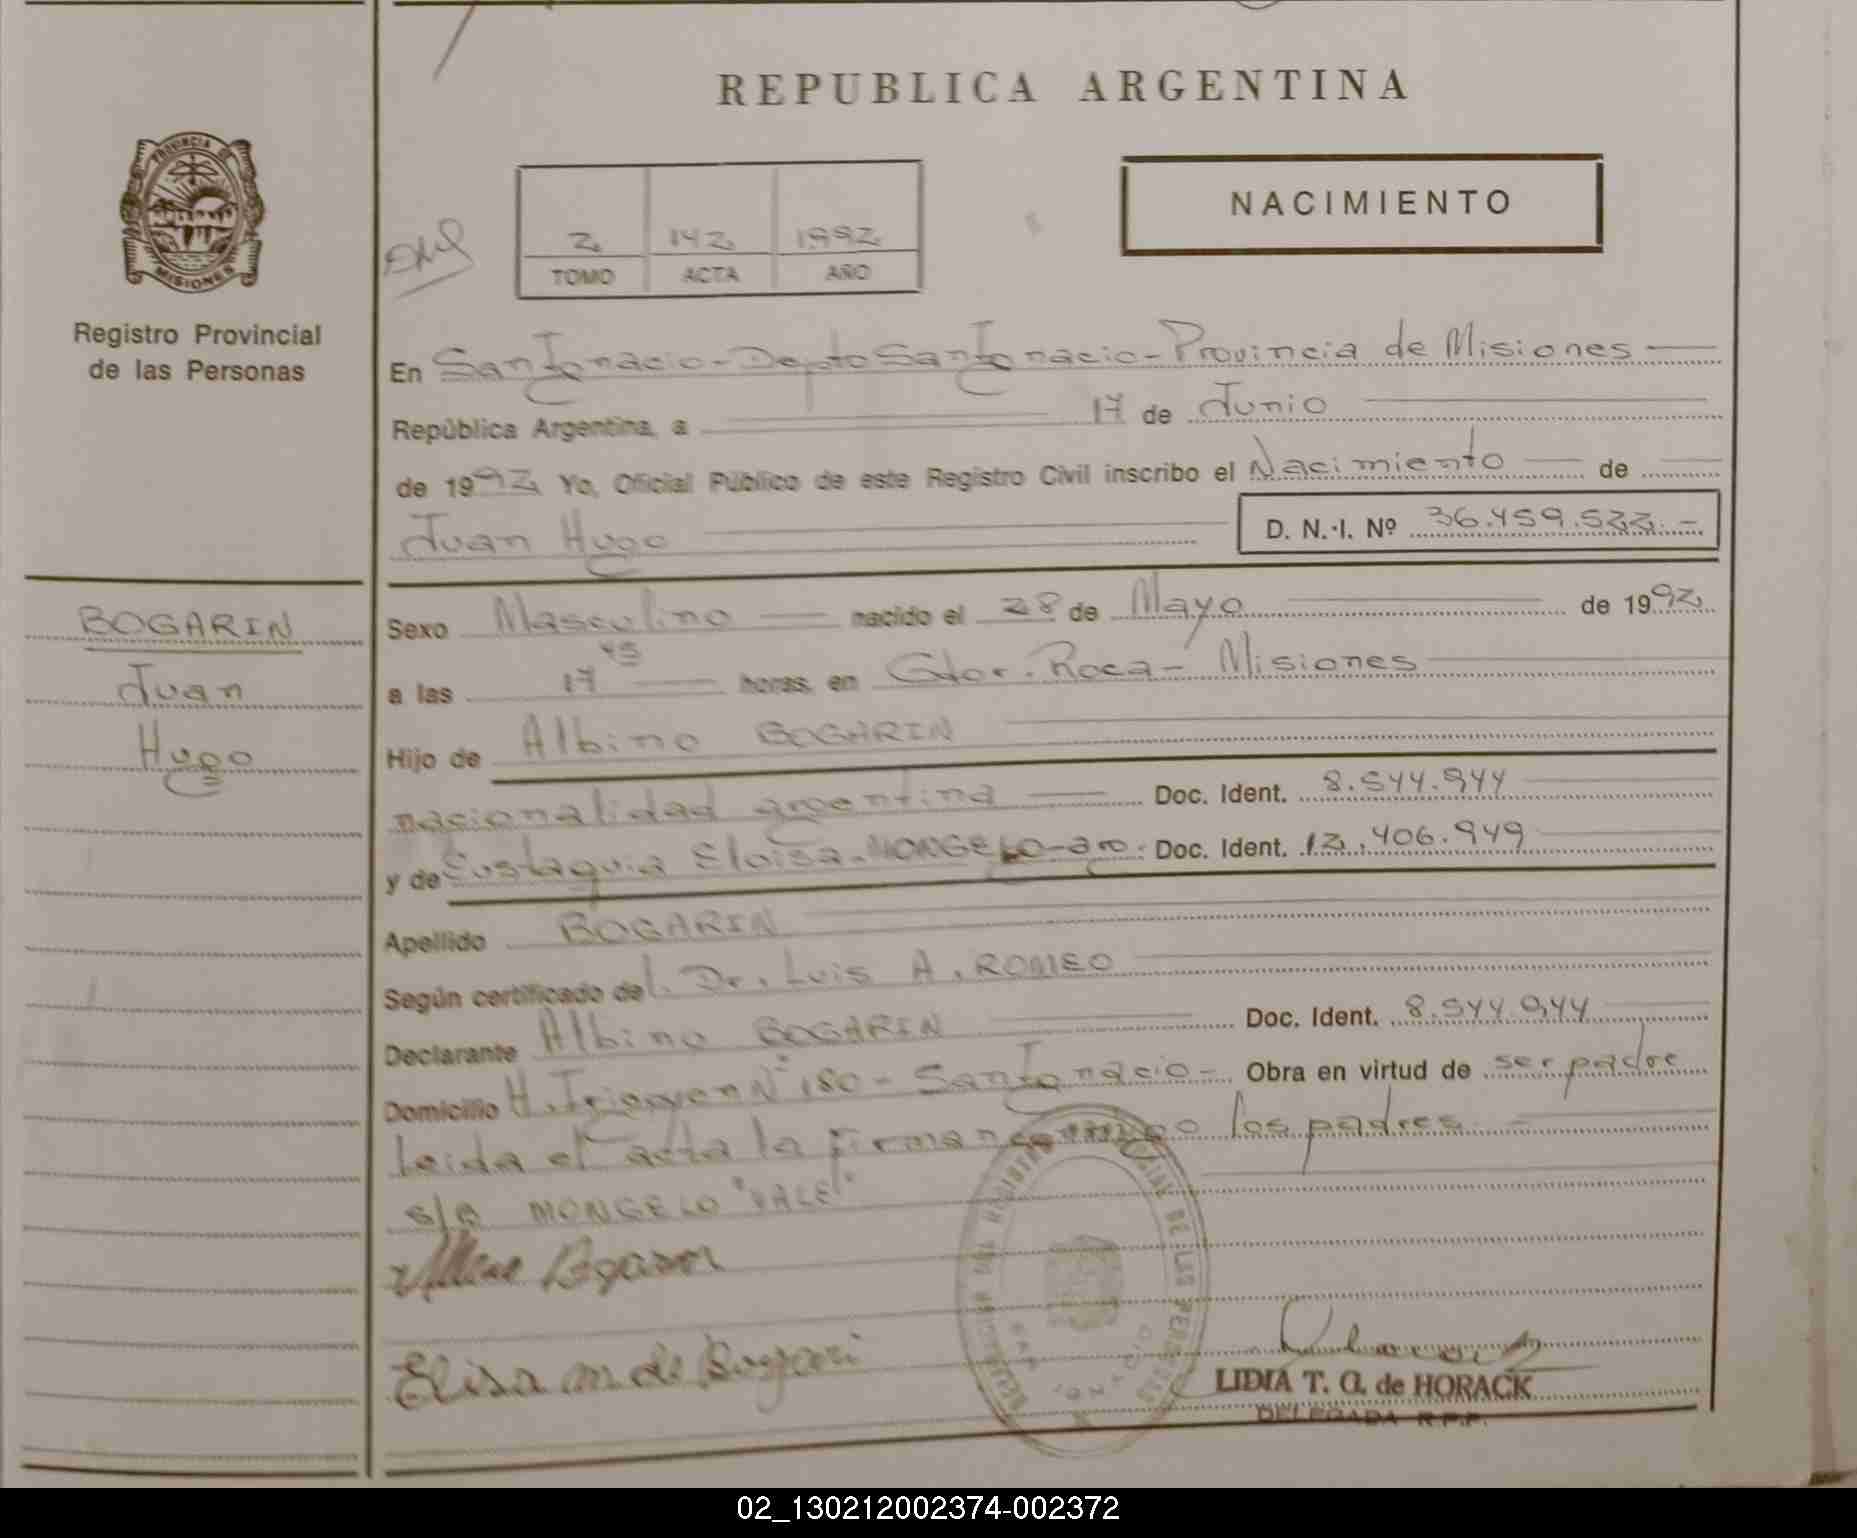 REPUBLICA ARGENTINA
PROVINCIA DE
MISIONES
Registro Provincial
de las Personas
2 142 1992
TOMO ACTA AÑO
NACIMIENTO
En San Ignacio - Depto San Ignacio - Provincia de Misiones
República Argentina, a 17 de Junio
de 1992 Yo, Oficial Público de este Registro Civil inscribo el Nacimiento de
Juan Hugo D. N. I. Nº 36.459.522.-
BOGARIN
Juan
Hugo
Sexo Masculino nacido el 28 de Mayo de 1992
a las 17 45 horas, en Gdor. Roca - Misiones
Hijo de Albino BOGARIN
nacionalidad argentina Doc. Ident. 8.544.944
y de Eustaquia Eloisa MONGELO - arg. Doc. Ident. 12.406.949
Apellido BOGARIN
Según certificado del Dr. Luis A. ROMEO
Declarante Albino BOGARIN Doc. Ident. 8.544.944
Domicilio H. Irigoyen Nº 180 - San Ignacio - Obra en virtud de ser padre
Leida el acta la firman conmigo los padres. -
s/r MONGELO "VALE".
Albino Bogarin
Elisa m de Bogari
DE LAS PERSONAS
LIDIA T. G. de HORACK
DELEGADA R.P.P.
02_130212002374-002372